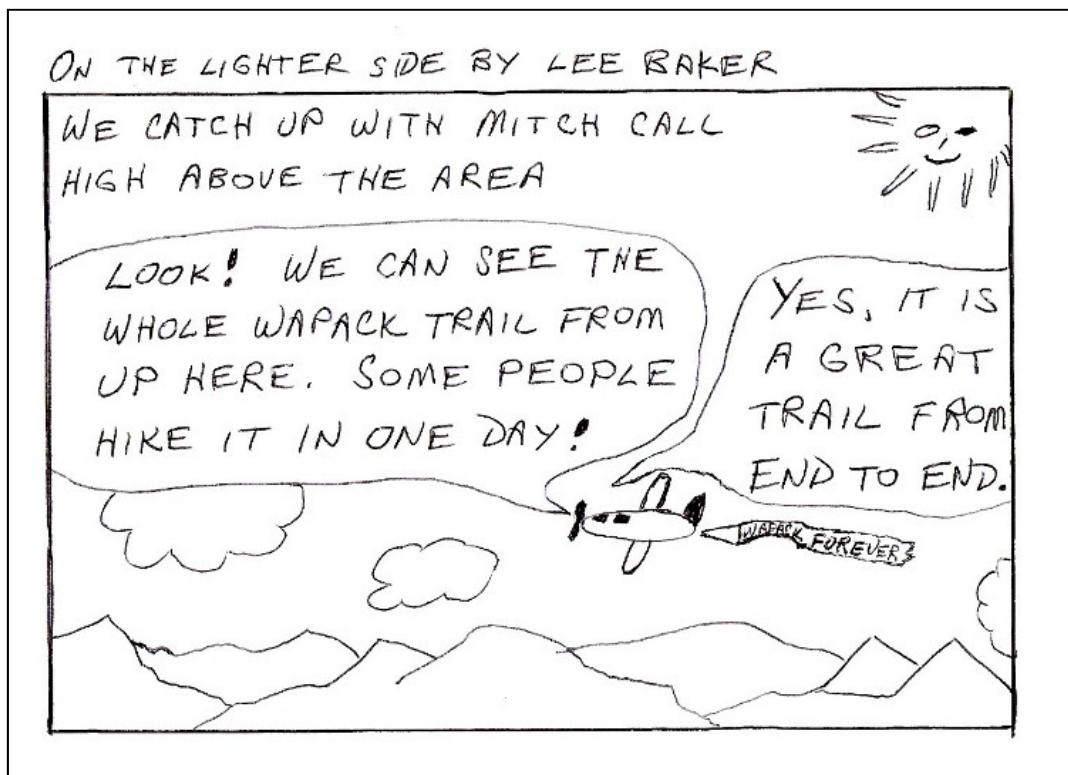 ON THE LIGHTER SIDE BY LEE BAKER
WE CATCH UP WITH MITCH CALL
HIGH ABOVE THE AREA
LOOK! WE CAN SEE THE
WHOLE WAPACK TRAIL FROM
UP HERE. SOME PEOPLE
HIKE IT IN ONE DAY!
YES, IT IS
A GREAT
TRAIL FROM
END TO END.
WAPACK FOREVER